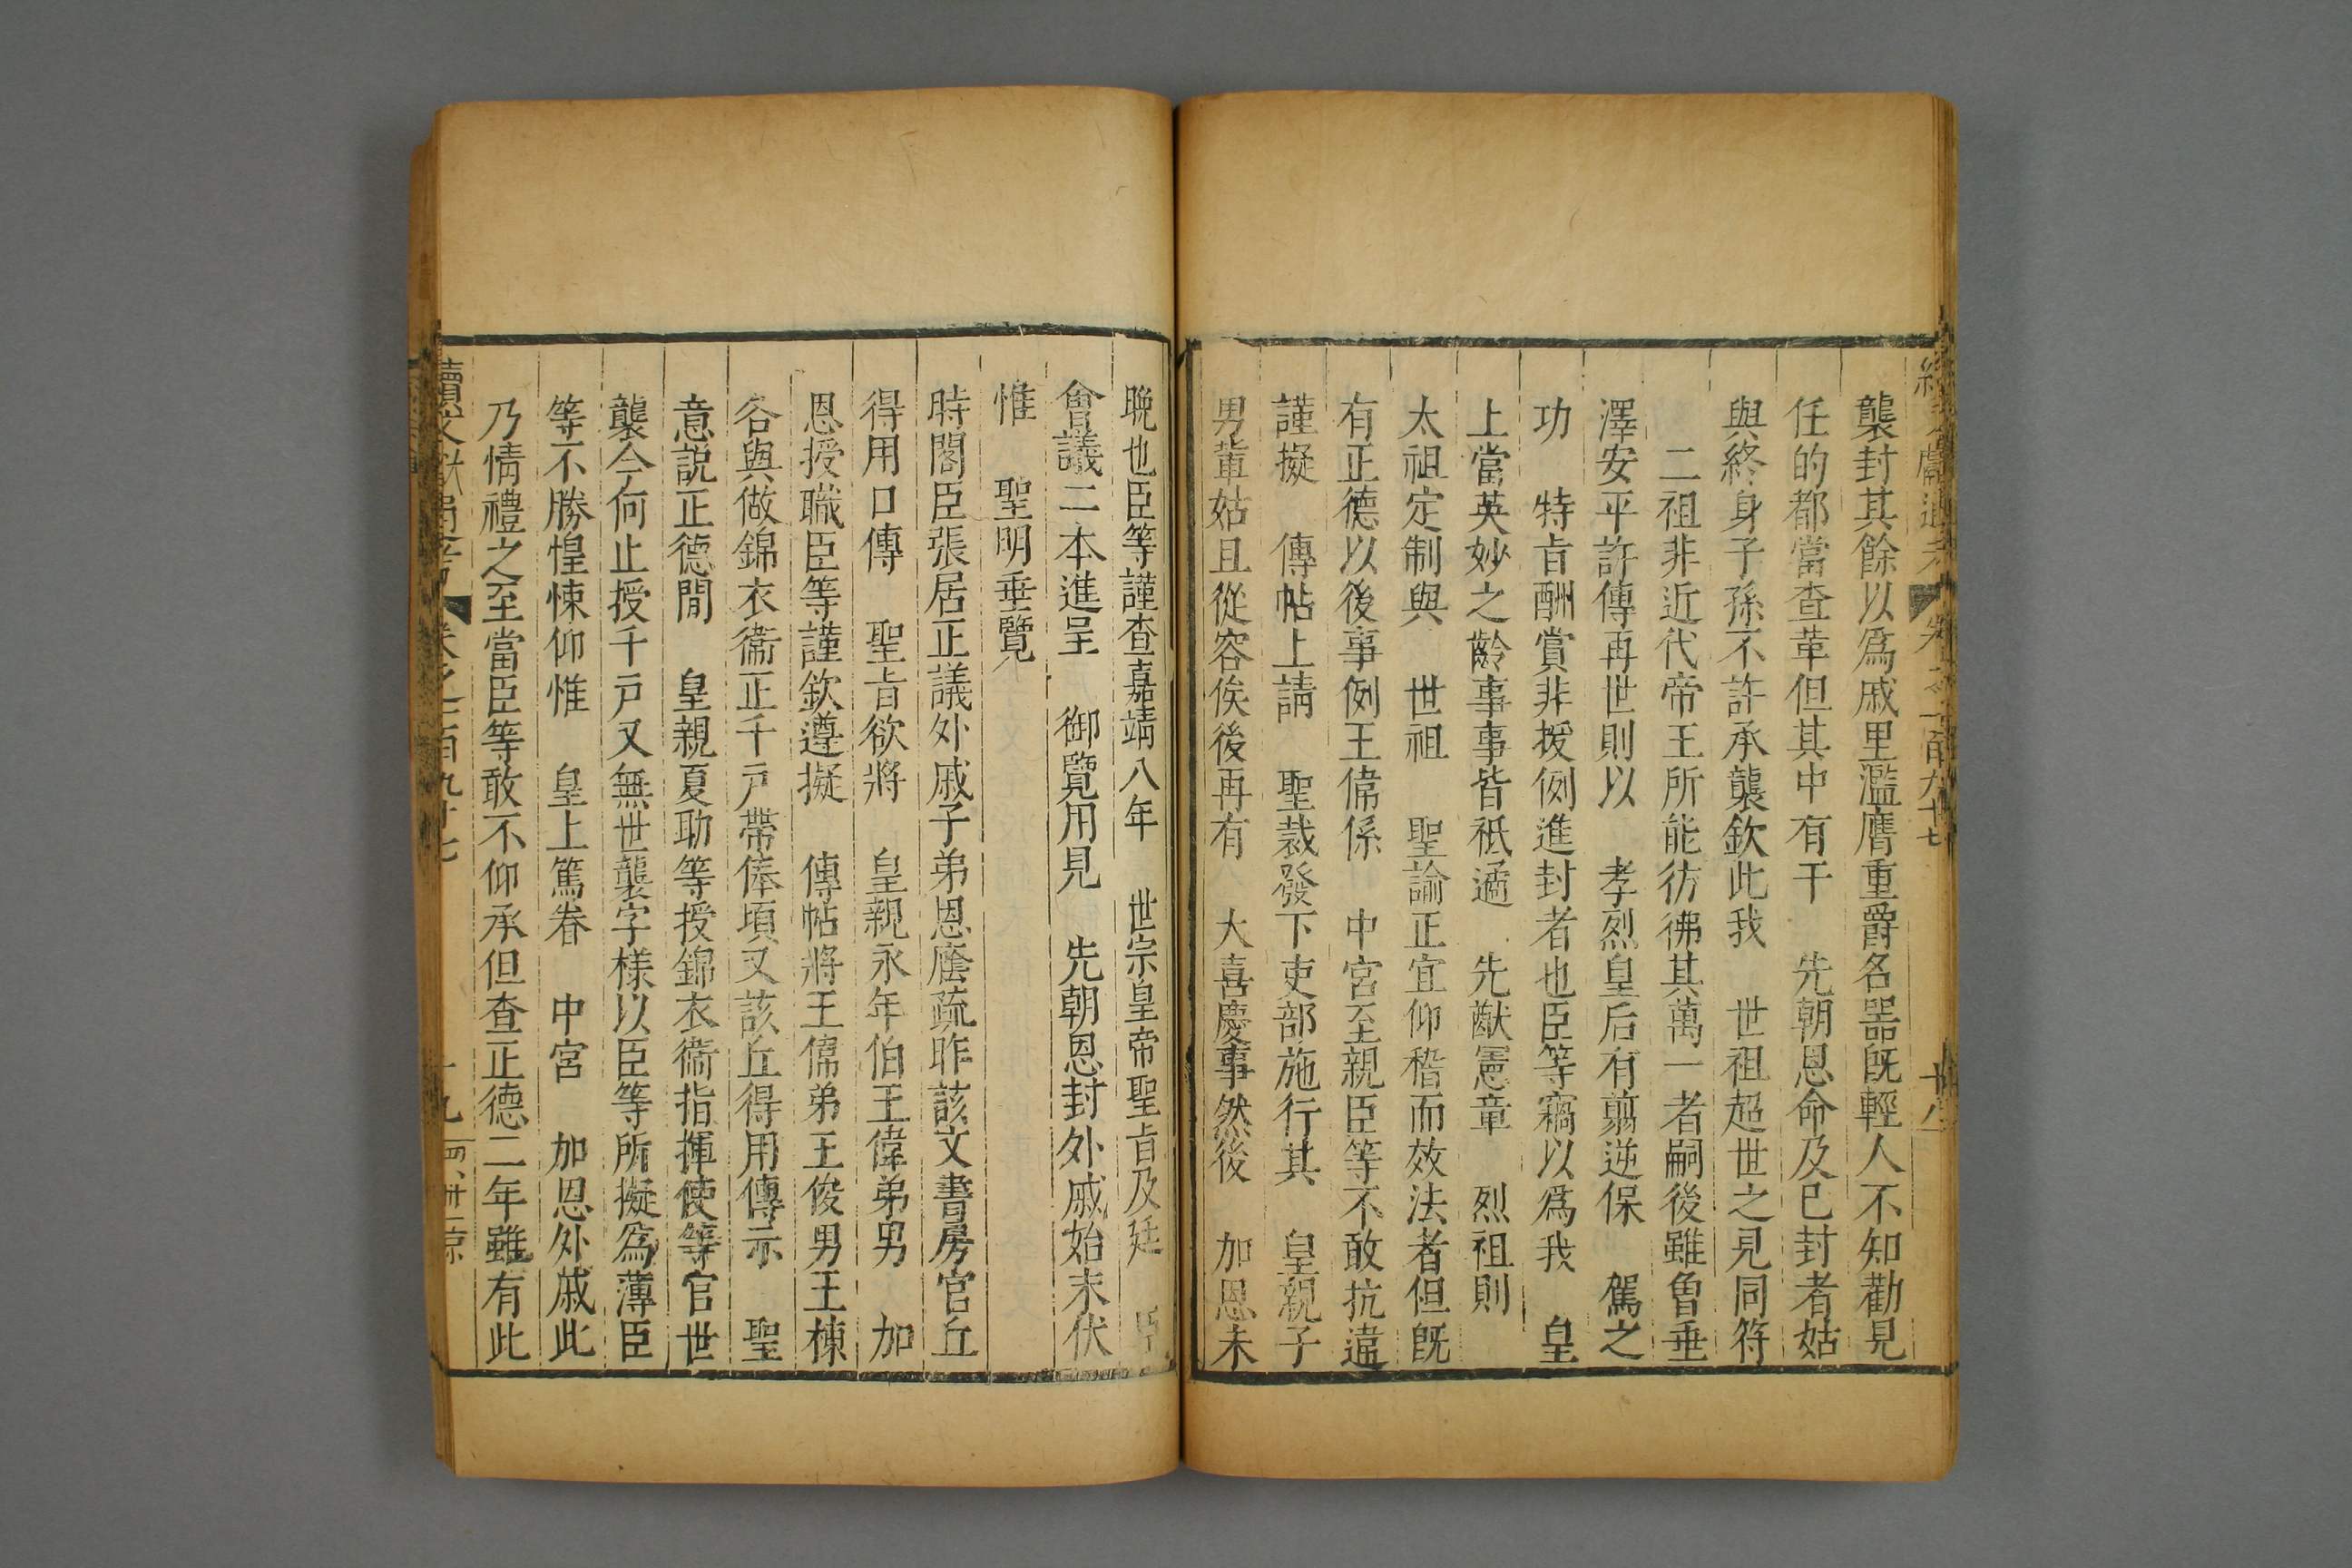 襲封其餘以爲戚里濫膺重爵名器旣輕人不知勸見
任的都當查革但其中有干　先朝恩命及已封者姑
與終身子孫不許承襲欽此我　世祖超世之見同符
二祖非近代帝王所能彷彿其萬一者嗣後雖曾垂
澤安平許傳再世則以　孝烈皇后有翦逆保　駕之
功　特旨酬賞非援例進封者也臣等竊以爲我　皇
上當英妙之齡事事皆祗遹　先猷憲章　烈祖則
太祖定制與　世祖　聖諭正宜仰稽而效法者但旣
有正德以後事例王偉係　中宮至親臣等不敢抗違
謹擬　傳帖上請　聖裁發下吏部施行其　皇親子
男輩姑且從容俟後再有　大喜慶事然後　加恩未
晚也臣等謹查嘉靖八年　世宗皇帝聖旨及廷　臣
會議二本進呈　御覽用見　先朝恩封外戚始末伏
惟　聖明垂覽
時閣臣張居正議外戚子弟恩廕疏昨該文書房官丘
得用口傳　聖旨欲將　皇親永年伯王偉弟男　加
恩授職臣等謹欽遵擬　傳帖將王偉弟王俊男王棟
各與做錦衣衞正千戶帶俸頃又該丘得用傳示　聖
意說正德間　皇親夏助等授錦衣衞指揮使等官世
襲今何止授千戶又無世襲字樣以臣等所擬爲薄臣
等不勝惶悚仰惟　皇上篤眷　中宮　加恩外戚此
乃情禮之至當臣等敢不仰承但查正德二年雖有此
續文獻通考　卷之一百九十七　十九